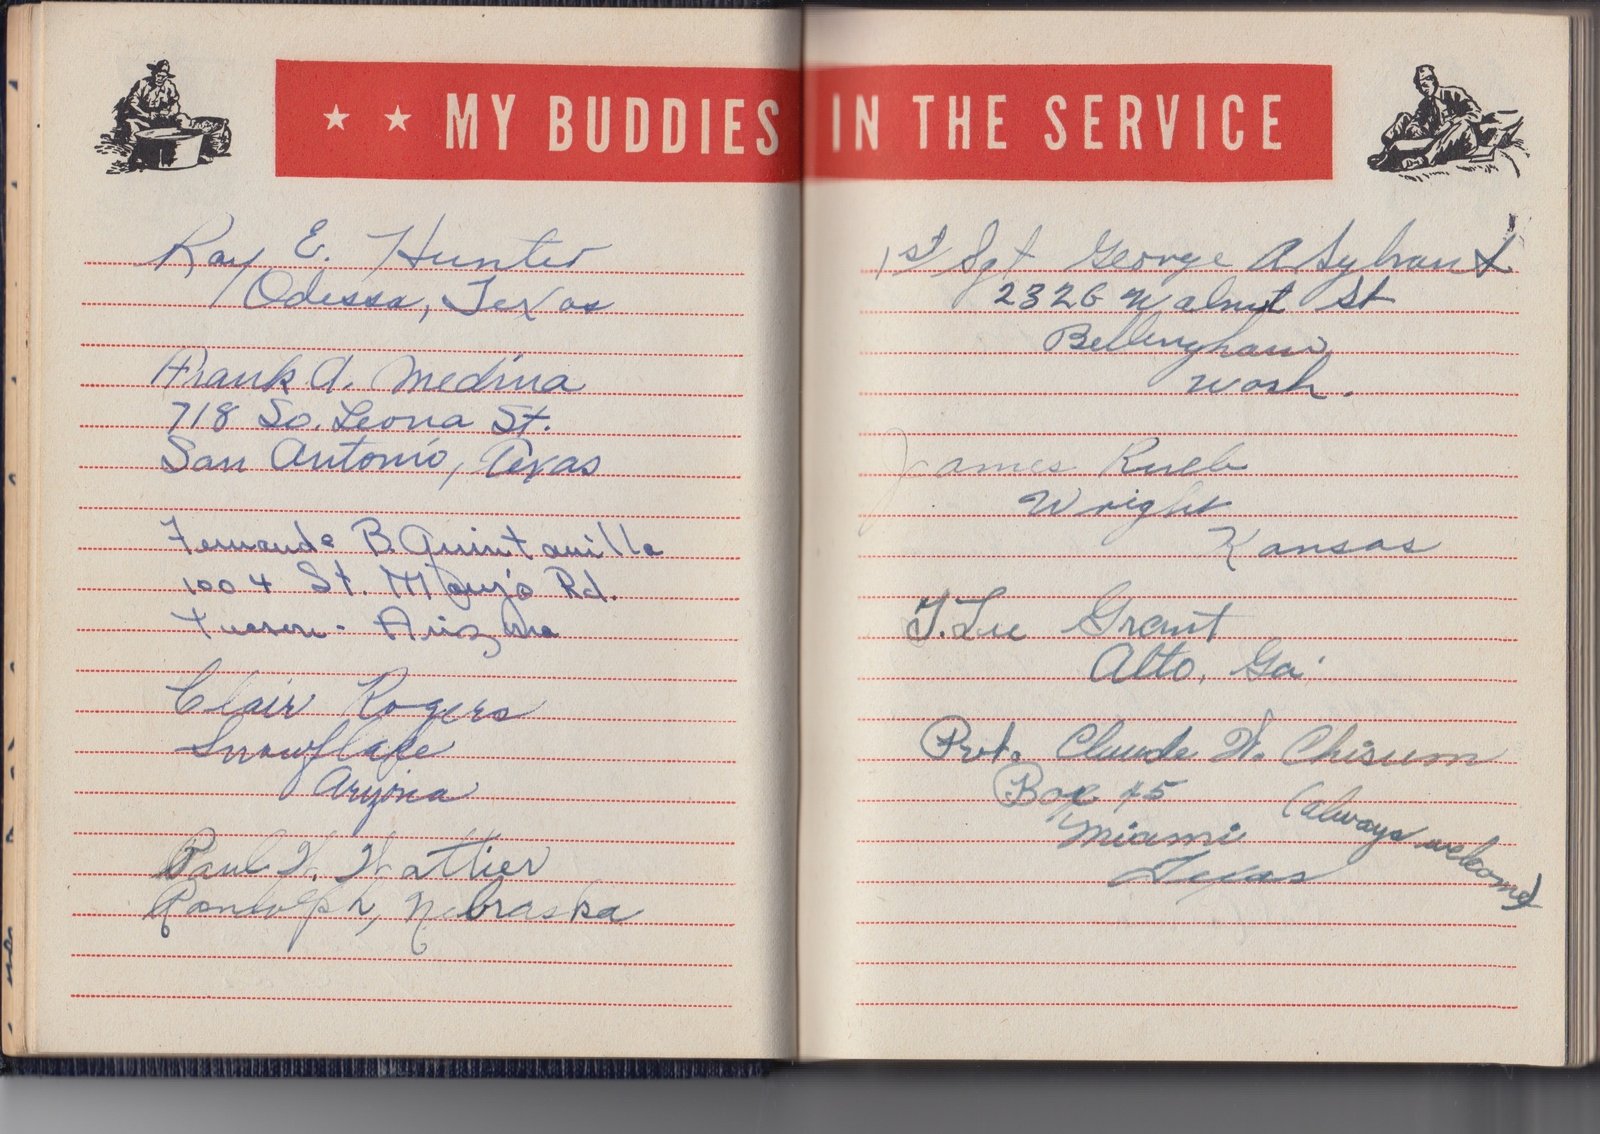 ★ ★ MY BUDDIES IN THE SERVICE
Ray E. Hunter
Odessa, Texas
Frank A. Medina
718 So. Leona St.
San Antonio, Texas
Fernando B. Quintanilla
1004 St. Mary's Rd.
Tucson - Arizona
Clair Rogers
Snowflake
Arizona
Paul W. Wattier
Randolph, Nebraska
1st Sgt George A Sylvan
2326 Walnut St
Bellingham
Wash.
James Rueb
Wright
Kansas
J. Lee Grant
Alto, Ga.
Pvt. Claude W. Chisum
Box 45
(always welcome)
Miami
Texas